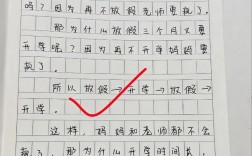 吗？因为再不放假老师要疯了。
那为什么放假三个月又要
开学呢？因为再不开学妈妈要
疯了。
所以放假→开学→放假→
开学。
这样，妈妈和老师都不会
疯了，那为什么开学时间长，